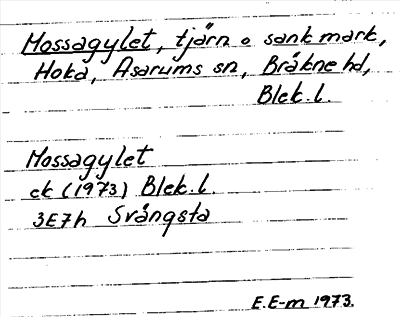 Mossagylet, tjärn o sank mark,
Hoka, Asarums sn, Bräkne hd,
Blek. l.
Mossagylet
ek (1973) Blek. l.
3E7h Svängsta
E.E-m 1973.